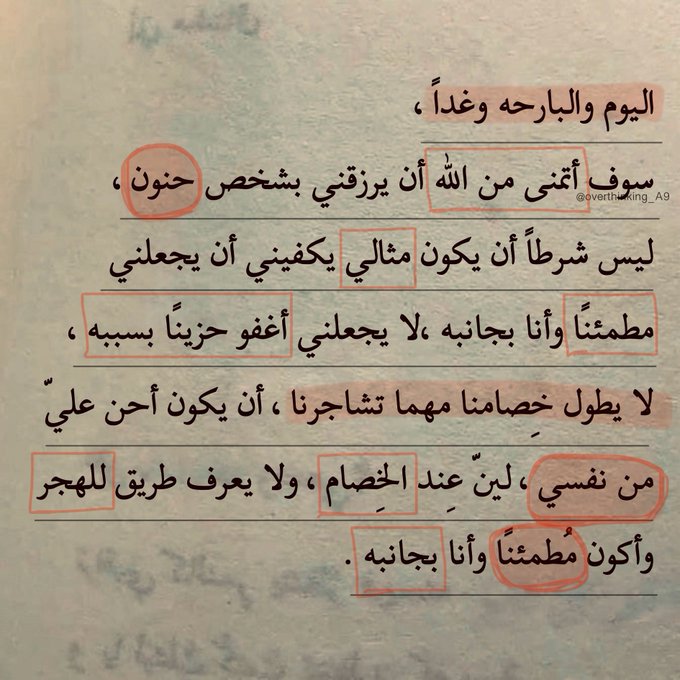 اليوم والبارحه وغداً ،
سوف أتمنى من الله أن يرزقني بشخص حنون ،
@overthinking_A9
ليس شرطاً أن يكون مثالي يكفيني أن يجعلني
مطمئنًا وأنا بجانبه ،لا يجعلني أغفو حزينًا بسببه ،
لا يطول خِصامنا مهما تشاجرنا ، أن يكون أحن عليّ
من نفسي ، لينّ عِند الخِصام ، ولا يعرف طريق للهجر
وأكون مُطمئنًا وأنا بجانبه .